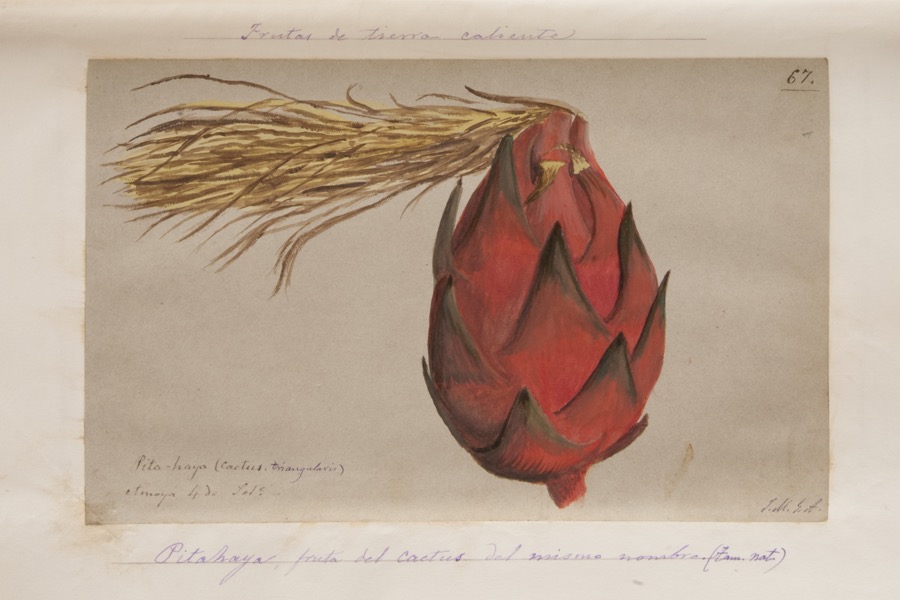 Frutas de tierra caliente
67.
Pita-haya (Cactus. triangularis)
4 de
J. M. G. A.
Pitahaya, fruta del cactus del mismo nombre. (Tam. nat.)